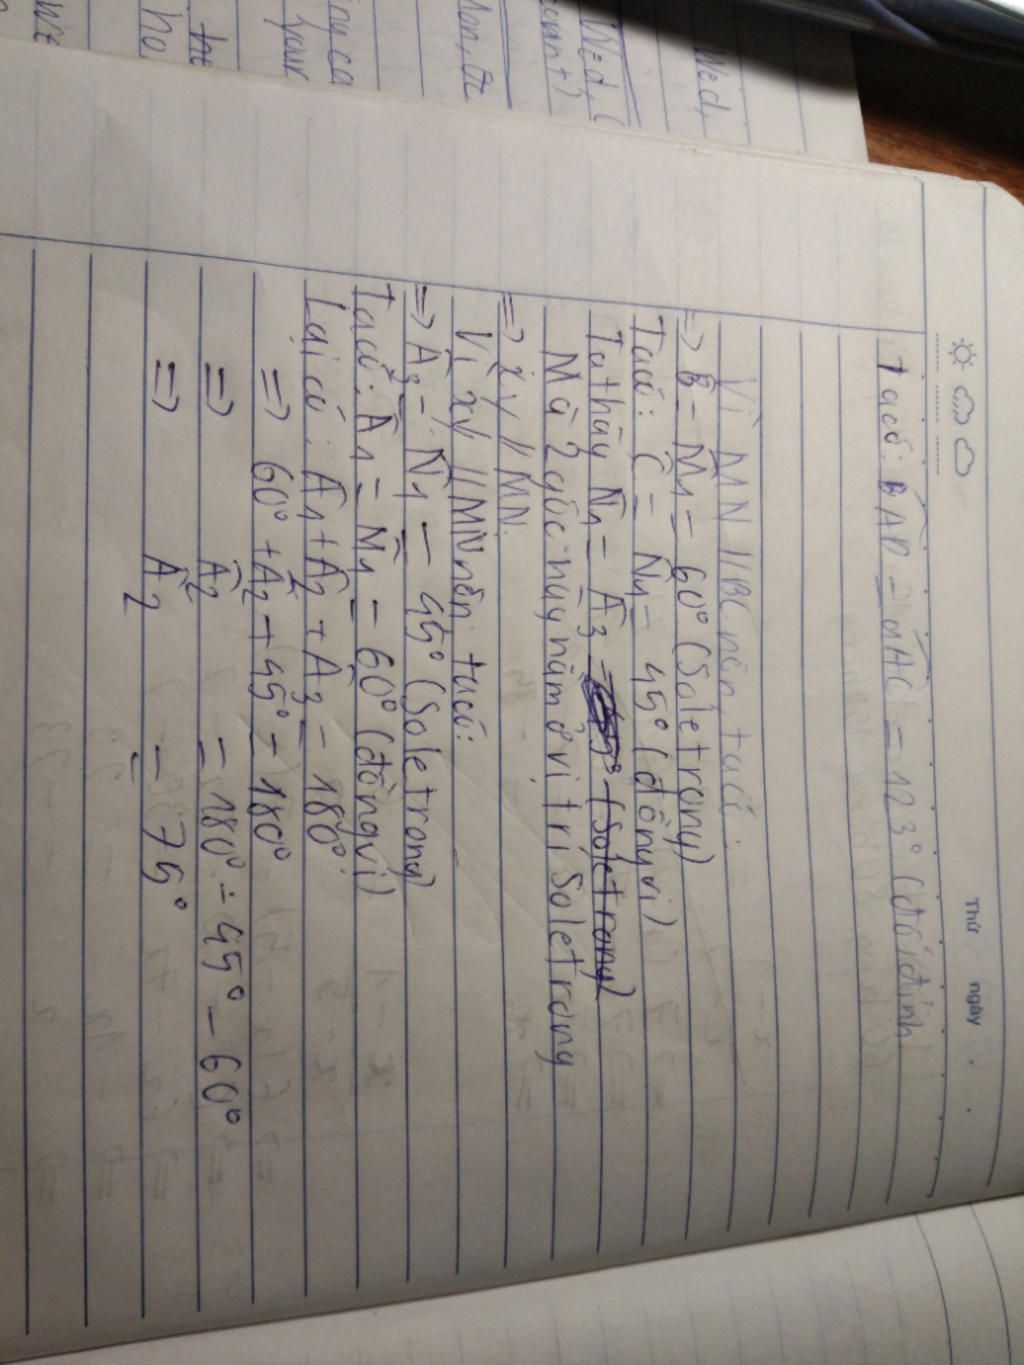 Thứ ngày
Ta có: BAD = MAC = 123° (đối đỉnh
Vì MN // BC nên, ta có:
=> B̂ = M̂1 = 60° (So le trong)
Ta có: Ĉ = N̂1 = 45° (đồng vị)
Ta thấy N̂1 = Â3 = (So le trong)
Mà 2 góc này nằm ở vị trí So le trong
=> xy // MN.
Vì xy // MN nên ta có:
=> Â3 = N̂1 = 45° (So le trong)
Ta có: Â1 = M̂1 = 60° (đồng vị)
Lại có: Â1 + Â2 + Â3 = 180°
=> 60° + Â2 + 45° = 180°
=> Â2 = 180° - 45° - 60°
=> Â2 = 75°
Wed,
Wed, (
Mon,
your
the
ho